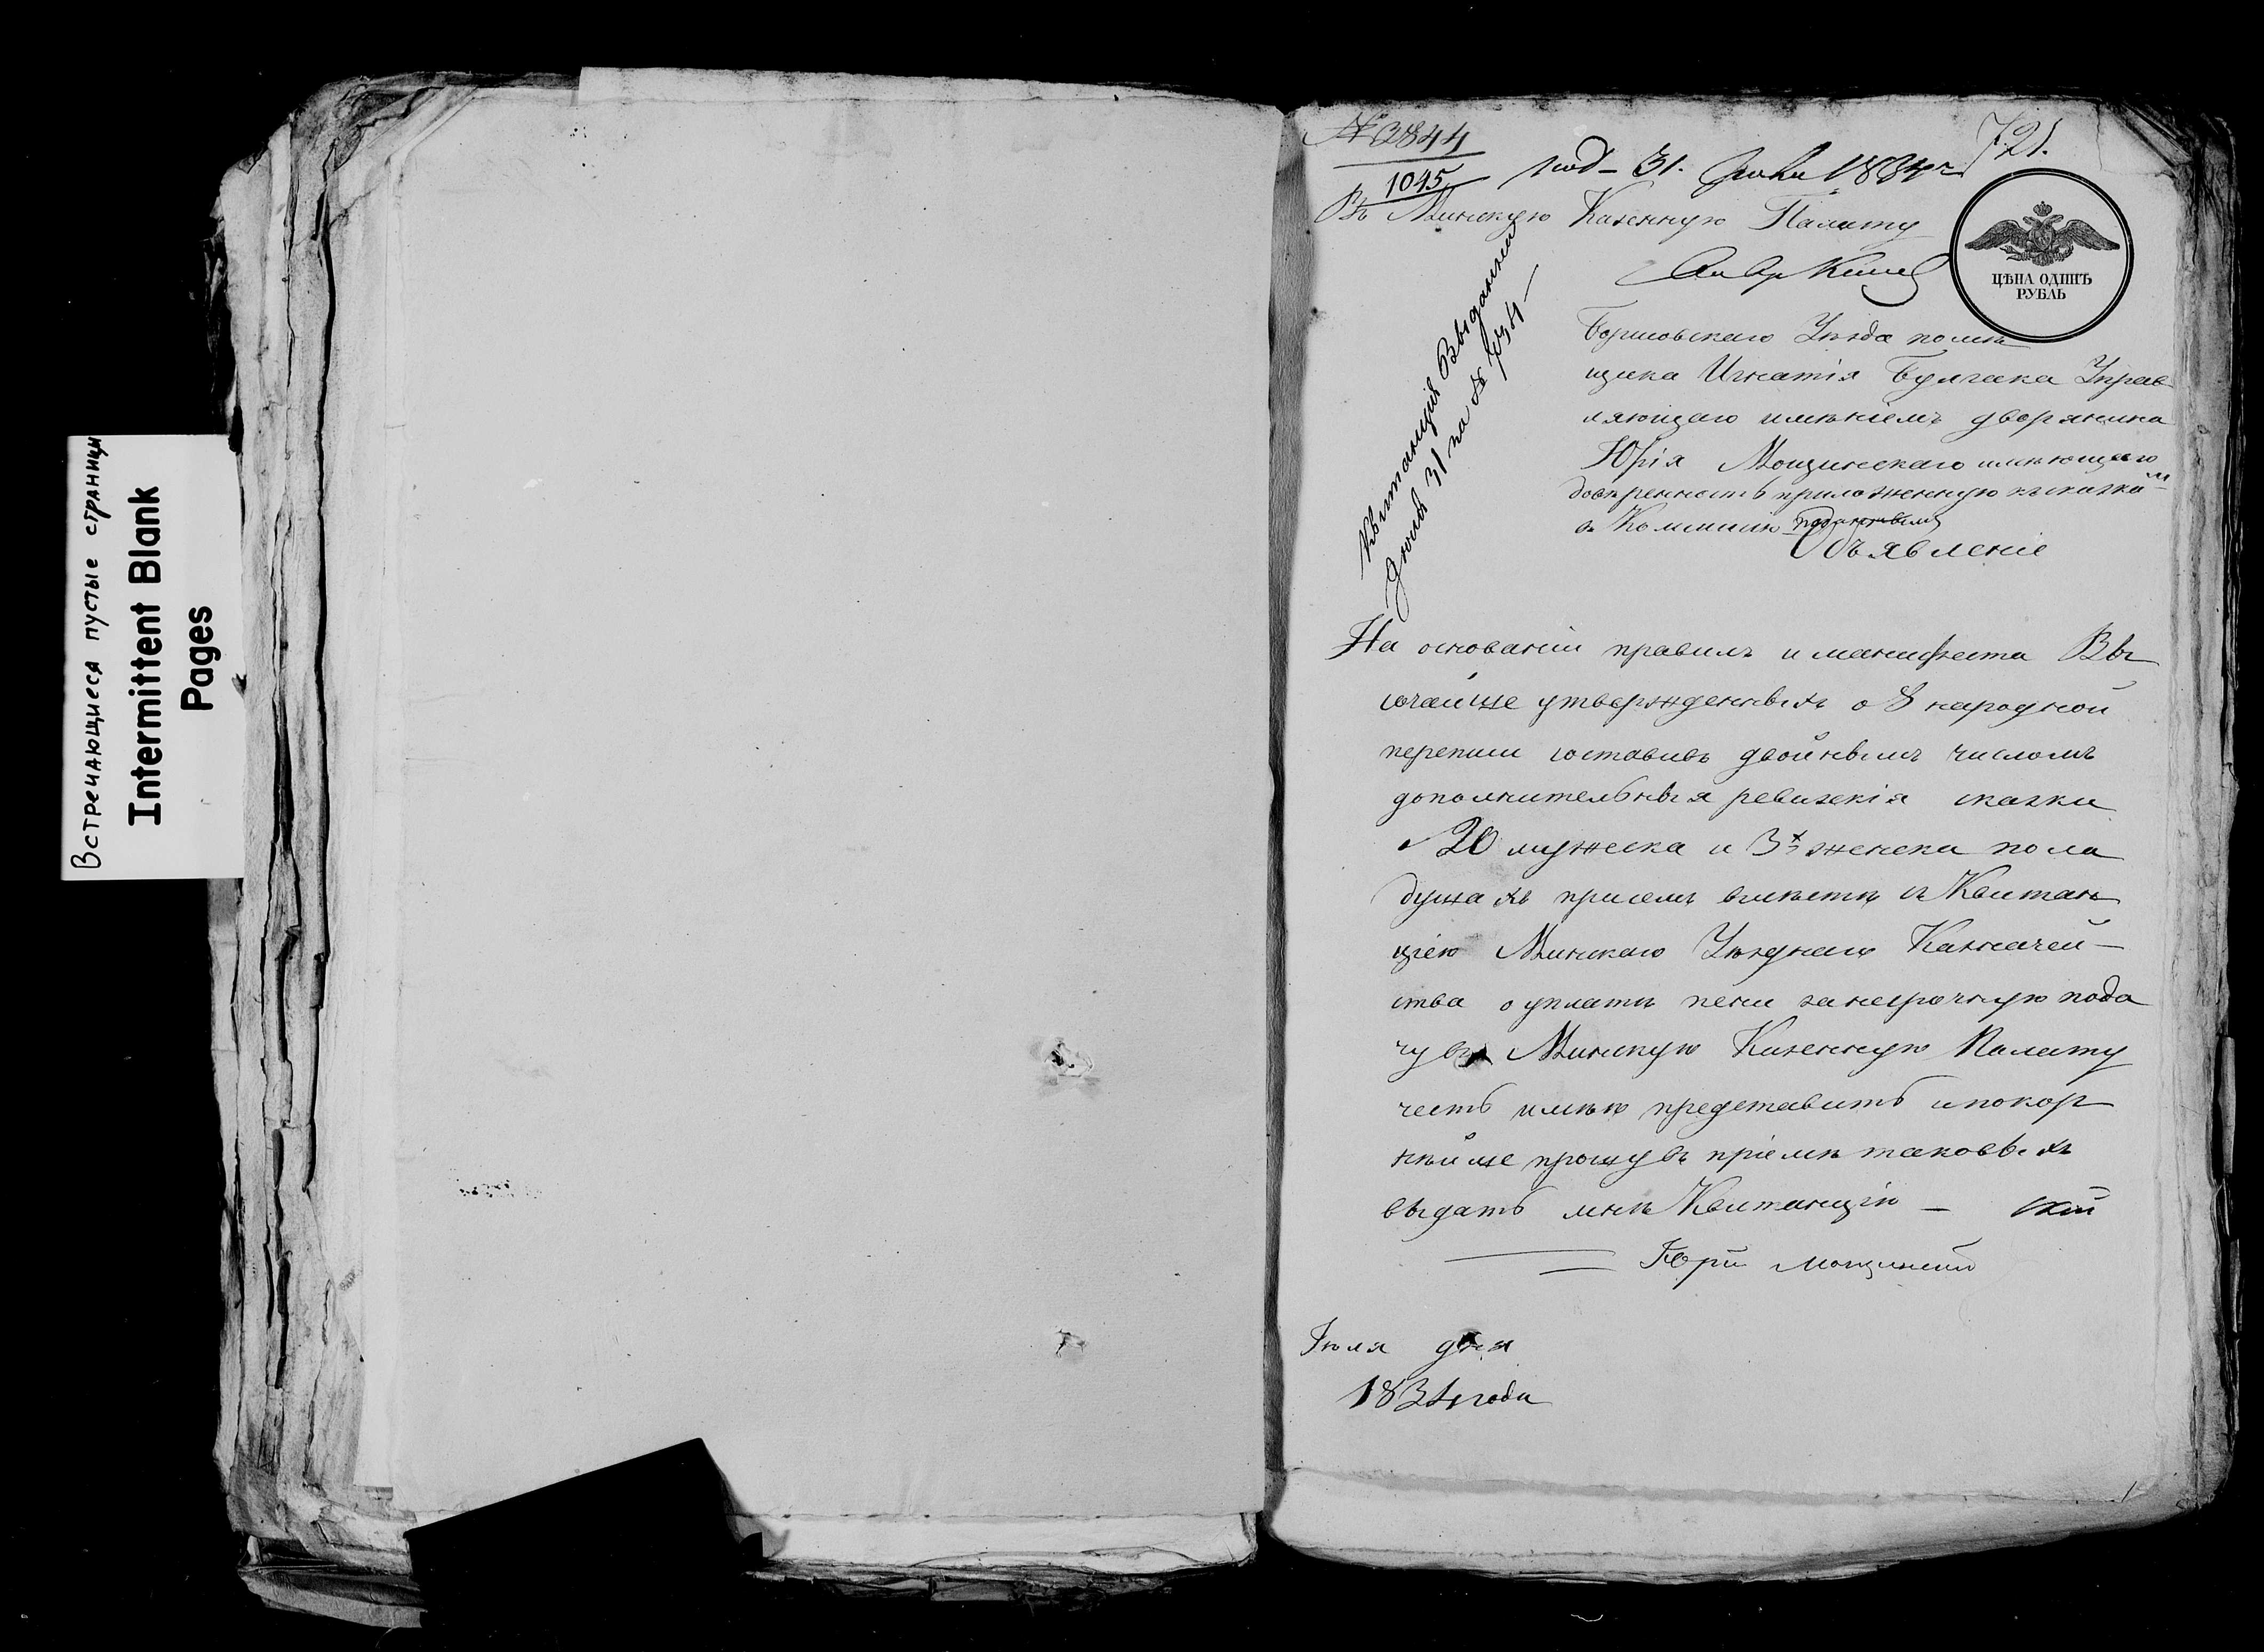 Встречающиеся пустые страницы
Intermittent Blank
Pages
№ 2844
1045
721.
под - 31. Июля 1834 г
Въ Минскую Казенную Палату
ЦѢНА ОДИНЪ
РУБЛЬ
Квитанція Выданна
Іюля 31 на №
Борисовскаго Уѣзда помѣ
щика Игнатія Булгака Управ
ляющаго имѣніемъ дворянина
Юрія Мощинскаго имѣющаго
довѣренность приложенную къ сказкамъ
Объявленіе
На основаніи правилъ и манифеста Вы
сочайше утвержденныхъ о 8 народной
переписи составивъ двойнымъ числомъ
дополнительныя ревизскія сказки
о 20 мужеска и 3х женска пола
душахъ при семъ вмѣстѣ съ Квитан
цією Минскаго Уѣзднаго Казначей-
ства о уплатѣ пени за несрочную пода
чу въ Минскую Казенную Палату
честь имѣю представить и покор
нѣйше прошу въ пріемѣ таковыхъ
выдать мнѣ Квитанцію -
Юрій Мощинскій
Іюля дня
1834 года